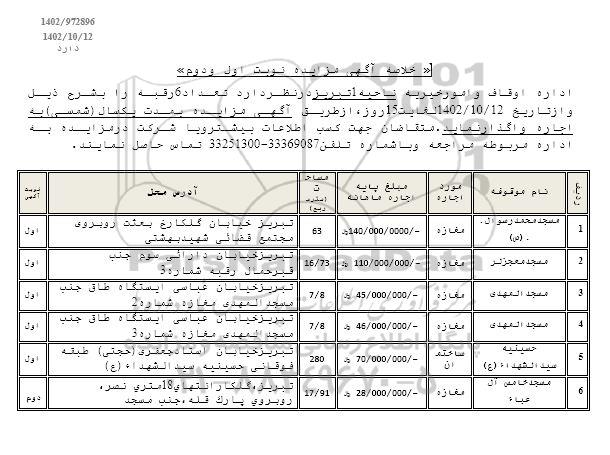 1402/972896
1402/10/12
دارد
«خلاصه آگهی مزایده نوبت اول ودوم»
اداره اوقاف وامورخیریه ناحیه1تبریزدرنظردارد تعداد6رقبه را بشرح ذیل
وازتاریخ 1402/10/12لغایت15روز،ازطریق آگهی مزایده بمدت یکسال(شمسی)به
اجاره واگذارنماید.متقاضان جهت کسب اطلاعات بیشتروبا شرکت درمزایده به
اداره مربوطه مراجعه وباشماره تلفن33369087-33251300 تماس حاصل نمایند.
ردیف نام موقوفه مورد اجاره مبلغ پایه اجاره ماهانه مساحت (متر مربع) آدرس محل نوبت آگهی
1 مسجدمحمدرسوال.. (ص) مغازه 140/000/0000/- ریال 63 تبریز خیابان گلکارخ بعثت روبروی مجتمع قضائی شهیدبهشتی اول
2 مسجدمعجزلر مغازه 110/000/000/- ریال 16/73 تبریزخیابان دارائی سوم جنب قیرحمال رقبه شماره3 اول
3 مسجدالمهدی مغازه 45/000/000/- ریال 7/8 تبریزخیابان عباسی ایستگاه طاق جنب مسجدالمهدی مغازه شماره2 اول
4 مسجدالمهدی مغازه 46/000/000/- ریال 7/8 تبریزخیابان عباسی ایستگاه طاق جنب مسجدالمهدی مغازه شماره3 اول
5 حسینیه سیدالشهداء(ع) ساختمان 70/000/000/- ریال 280 تبریزخیابان استادجعفری(حجتی) طبقه فوقانی حسینیه سیدالشهداء(ع) اول
6 مسجدخامس آل عباء مغازه 28/000/000/- ریال 17/91 تبریز،گلکارانتهاي18متري نصر، روبروي پارك قله،جنب مسجد دوم